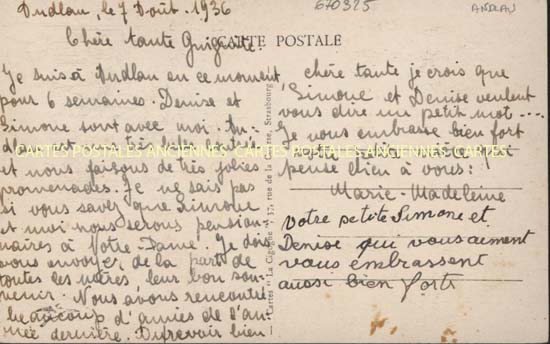 Andlau, le 7 Août. 1936
670325
ANDLAU
Chère tante
CARTE POSTALE
Je suis à Andlau en ce moment
pour 6 semaines. Denise et
Simone sont avec moi. An-
et nous faisons de très jolies
promenades. Je ne sais pas
si vous savez que Simone
et moi nous serons pension-
naires à Notre-Dame. Je dois
vous envoyer de la part de
toutes les nôtres leur bon sou-
venir. Nous avons rencontré
beaucoup d'amies de l'an-
née dernière. Au revoir bien
chère tante je crois que
Simone et Denise veulent
vous dire un petit mot...
Je vous embrasse bien fort
pense bien à vous:
Marie-Madeleine
Votre petite Simone et
Denise qui vous aiment
vous embrassent
aussi bien fort
Cartes "La Cigogne", 37, rue de la Strasbourg
CARTES POSTALES ANCIENNES CARTES POSTALES ANCIENNES CARTES